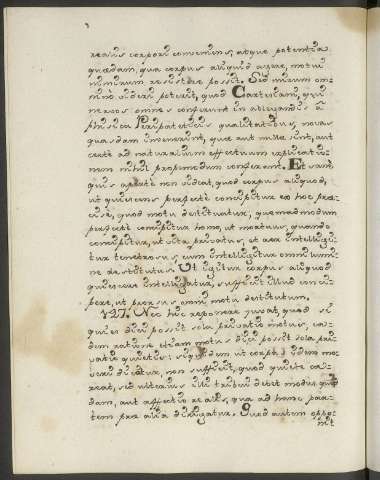 realis corpori conveniens, atque potentia
quædam, qua corpus aliquid agere, motui
nimirum resistere possit. Sed mirum om-
nino videri poterit, quod Cartesiani, qui
nervos omnes conferunt in ablegandis à
phisica Peripateticis qualitatibus, novas
quasdam invenerint, quæ aut nullæ sint, aut
certe ad naturalium effectuum explicatio-
nem nihil propemodum conferant. Et sanè
quis aperte non videat, quod corpus aliquod,
ut quiescens perfectè concipitur eo hoc præ-
cise, quod motu destituatur, quemadmodum
perfectè concipitur homo, ut mortuus, quando
concipitur, ut vita privatus, et aer intelligi-
tur tenebrosus, cum intelligitur omni lumi-
ne destitutus. Ut igitur corpus aliquod
quiescere intelligatur, sufficit illud conci-
pere, ut prorsus omni motu destitutum.
127. Nec hic reponere juvat, quod si
quies dici possit sola privatio motus, ea-
dem ratione etiam motus dici possit sola pri-
vatio quietis: siquidem ut corpus idem mo-
veri dicatur, non sufficit, quod quiete ca-
reat, sed ulterius illi tribui debet modus qui-
dam, aut affectio realis, qua ad hanc par-
tem præ alia dirigatur. Quod autem oppo-
nit